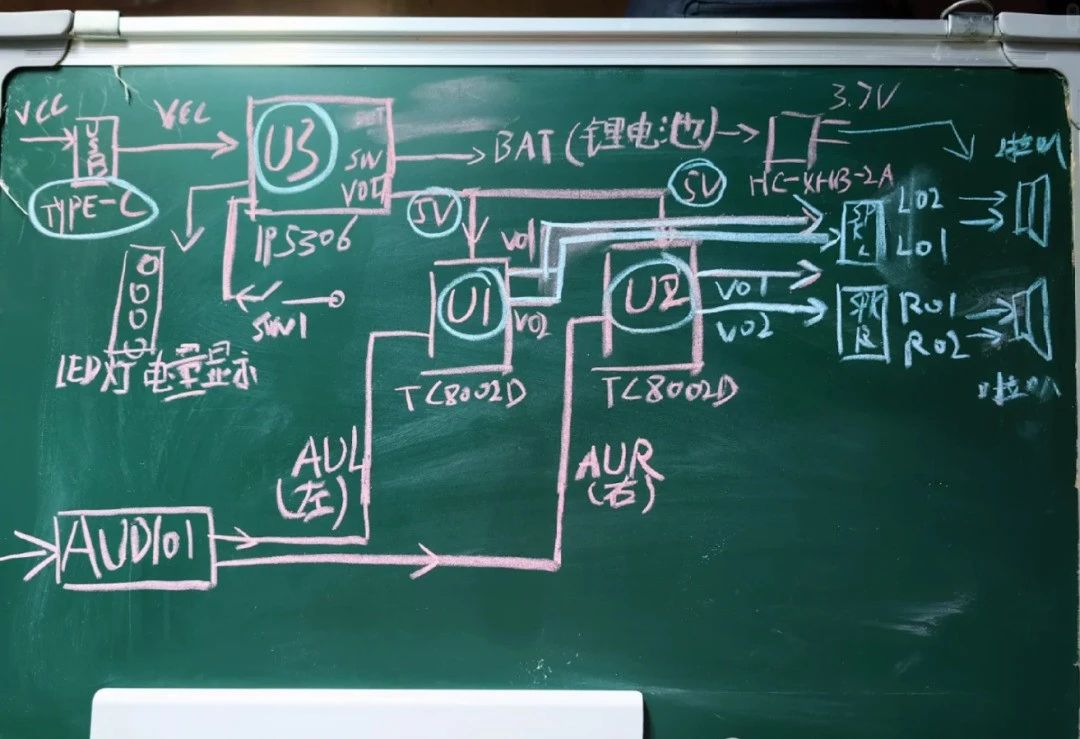 VCC
USB
TYPE-C
VCC
U3
SW
VOU
IP5306
BAT(锂电池)
3.7V
HC-XHB-2A
5V
5V
喇叭
SPK L
LO2
LO1
VO1
VO2
U1
TC8002D
U2
VO1
VO2
TC8002D
SPK R
RO1
RO2
喇叭
SW1
LED灯电量显示
AUL
(左)
AUR
(右)
AUDIO1